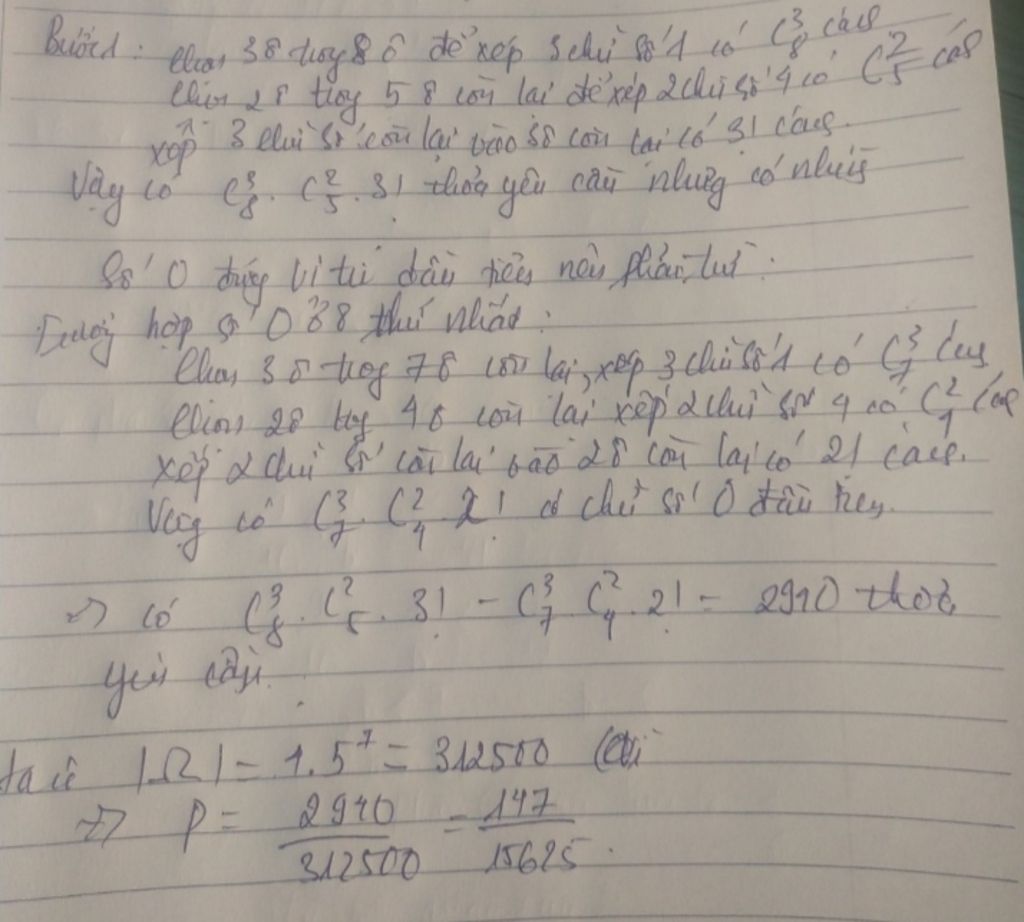 Bước 1: Chọn 3 ô trong 8 ô để xếp 3 chữ số 1 có C₈³ cách
Chọn 2 ô trong 5 ô còn lại để xếp 2 chữ số 4 có C₅² cách
xếp 3 chữ số còn lại vào 3 ô còn lại có 3! cách.
Vậy có C₈³. C₅². 3! thỏa yêu cầu nhưng có những
Số 0 đứng vị trí đầu tiên nên phải trừ:
Trường hợp số 0 ở ô thứ nhất:
Chọn 3 ô trong 7 ô còn lại, xếp 3 chữ số 1 có C₇³ cách
Chọn 2 ô trong 4 ô còn lại xếp 2 chữ số 4 có C₄² cách
xếp 2 chữ số còn lại vào 2 ô còn lại có 2! cách.
Vậy có C₇³. C₄². 2! có chữ số 0 đầu tiên.
=> có C₈³. C₅². 3! - C₇³. C₄². 2! = 2940 thỏa
yêu cầu.
ta có |Ω| = 4.5⁷ = 312500
=> P = 2940/312500 = 147/15625.